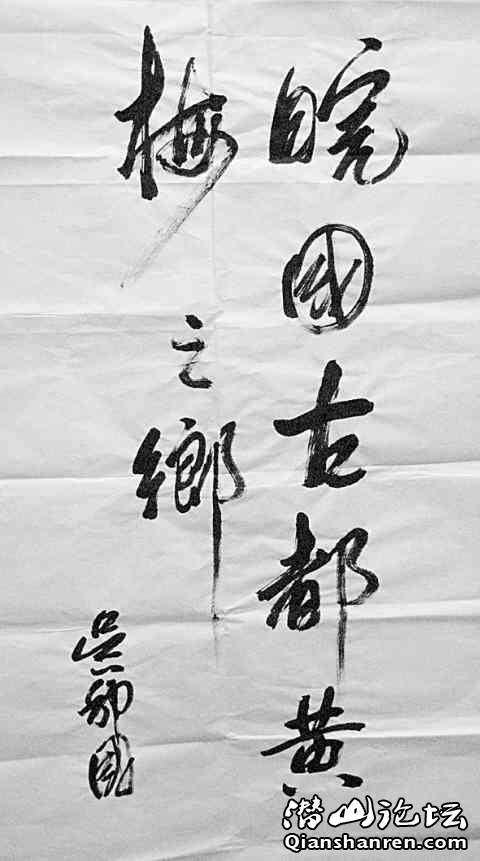 皖國古都黄
梅之鄉
吴邦國
潜山论坛
Qianshanren.com